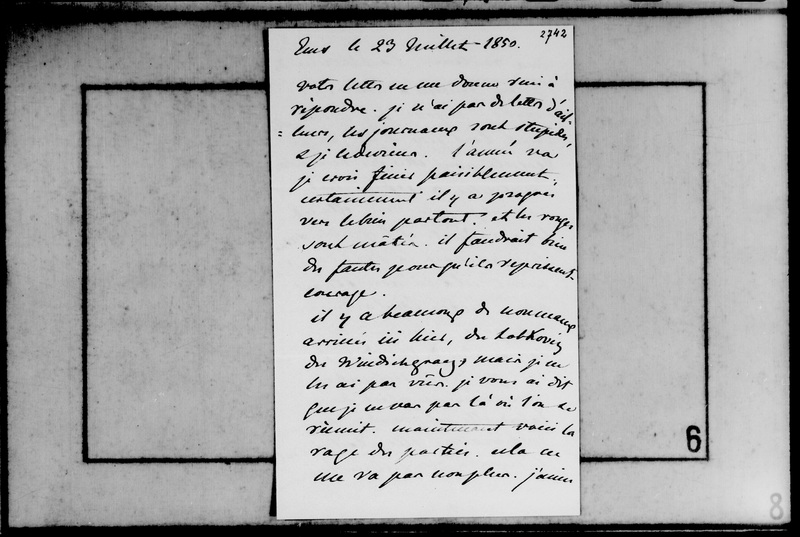 2742
Ems le 23 Juillet 1850.
votre lettre ne me donne rien à
répondre. je n'ai pas de lettres d'ail-
=leurs, les journaux sont stupides,
& je le deviens. l'année va
je crois finir paisiblement,
certainement il y a progrès
vers le bien partout. et les rouges
sont mâtés. il faudrait bien
des fautes pour qu'ils reprissent
courage.
il y a beaucoup de nouveaux
arrivés ici hier, des Lobkovitz
des Windichgraetz mais je ne
les ai pas vus. je vous ai dit
que je ne vas pas là où l'on se
réunit. maintenant voici la
rage des parties. cela ne
me va pas non plus. j'aime
6
8